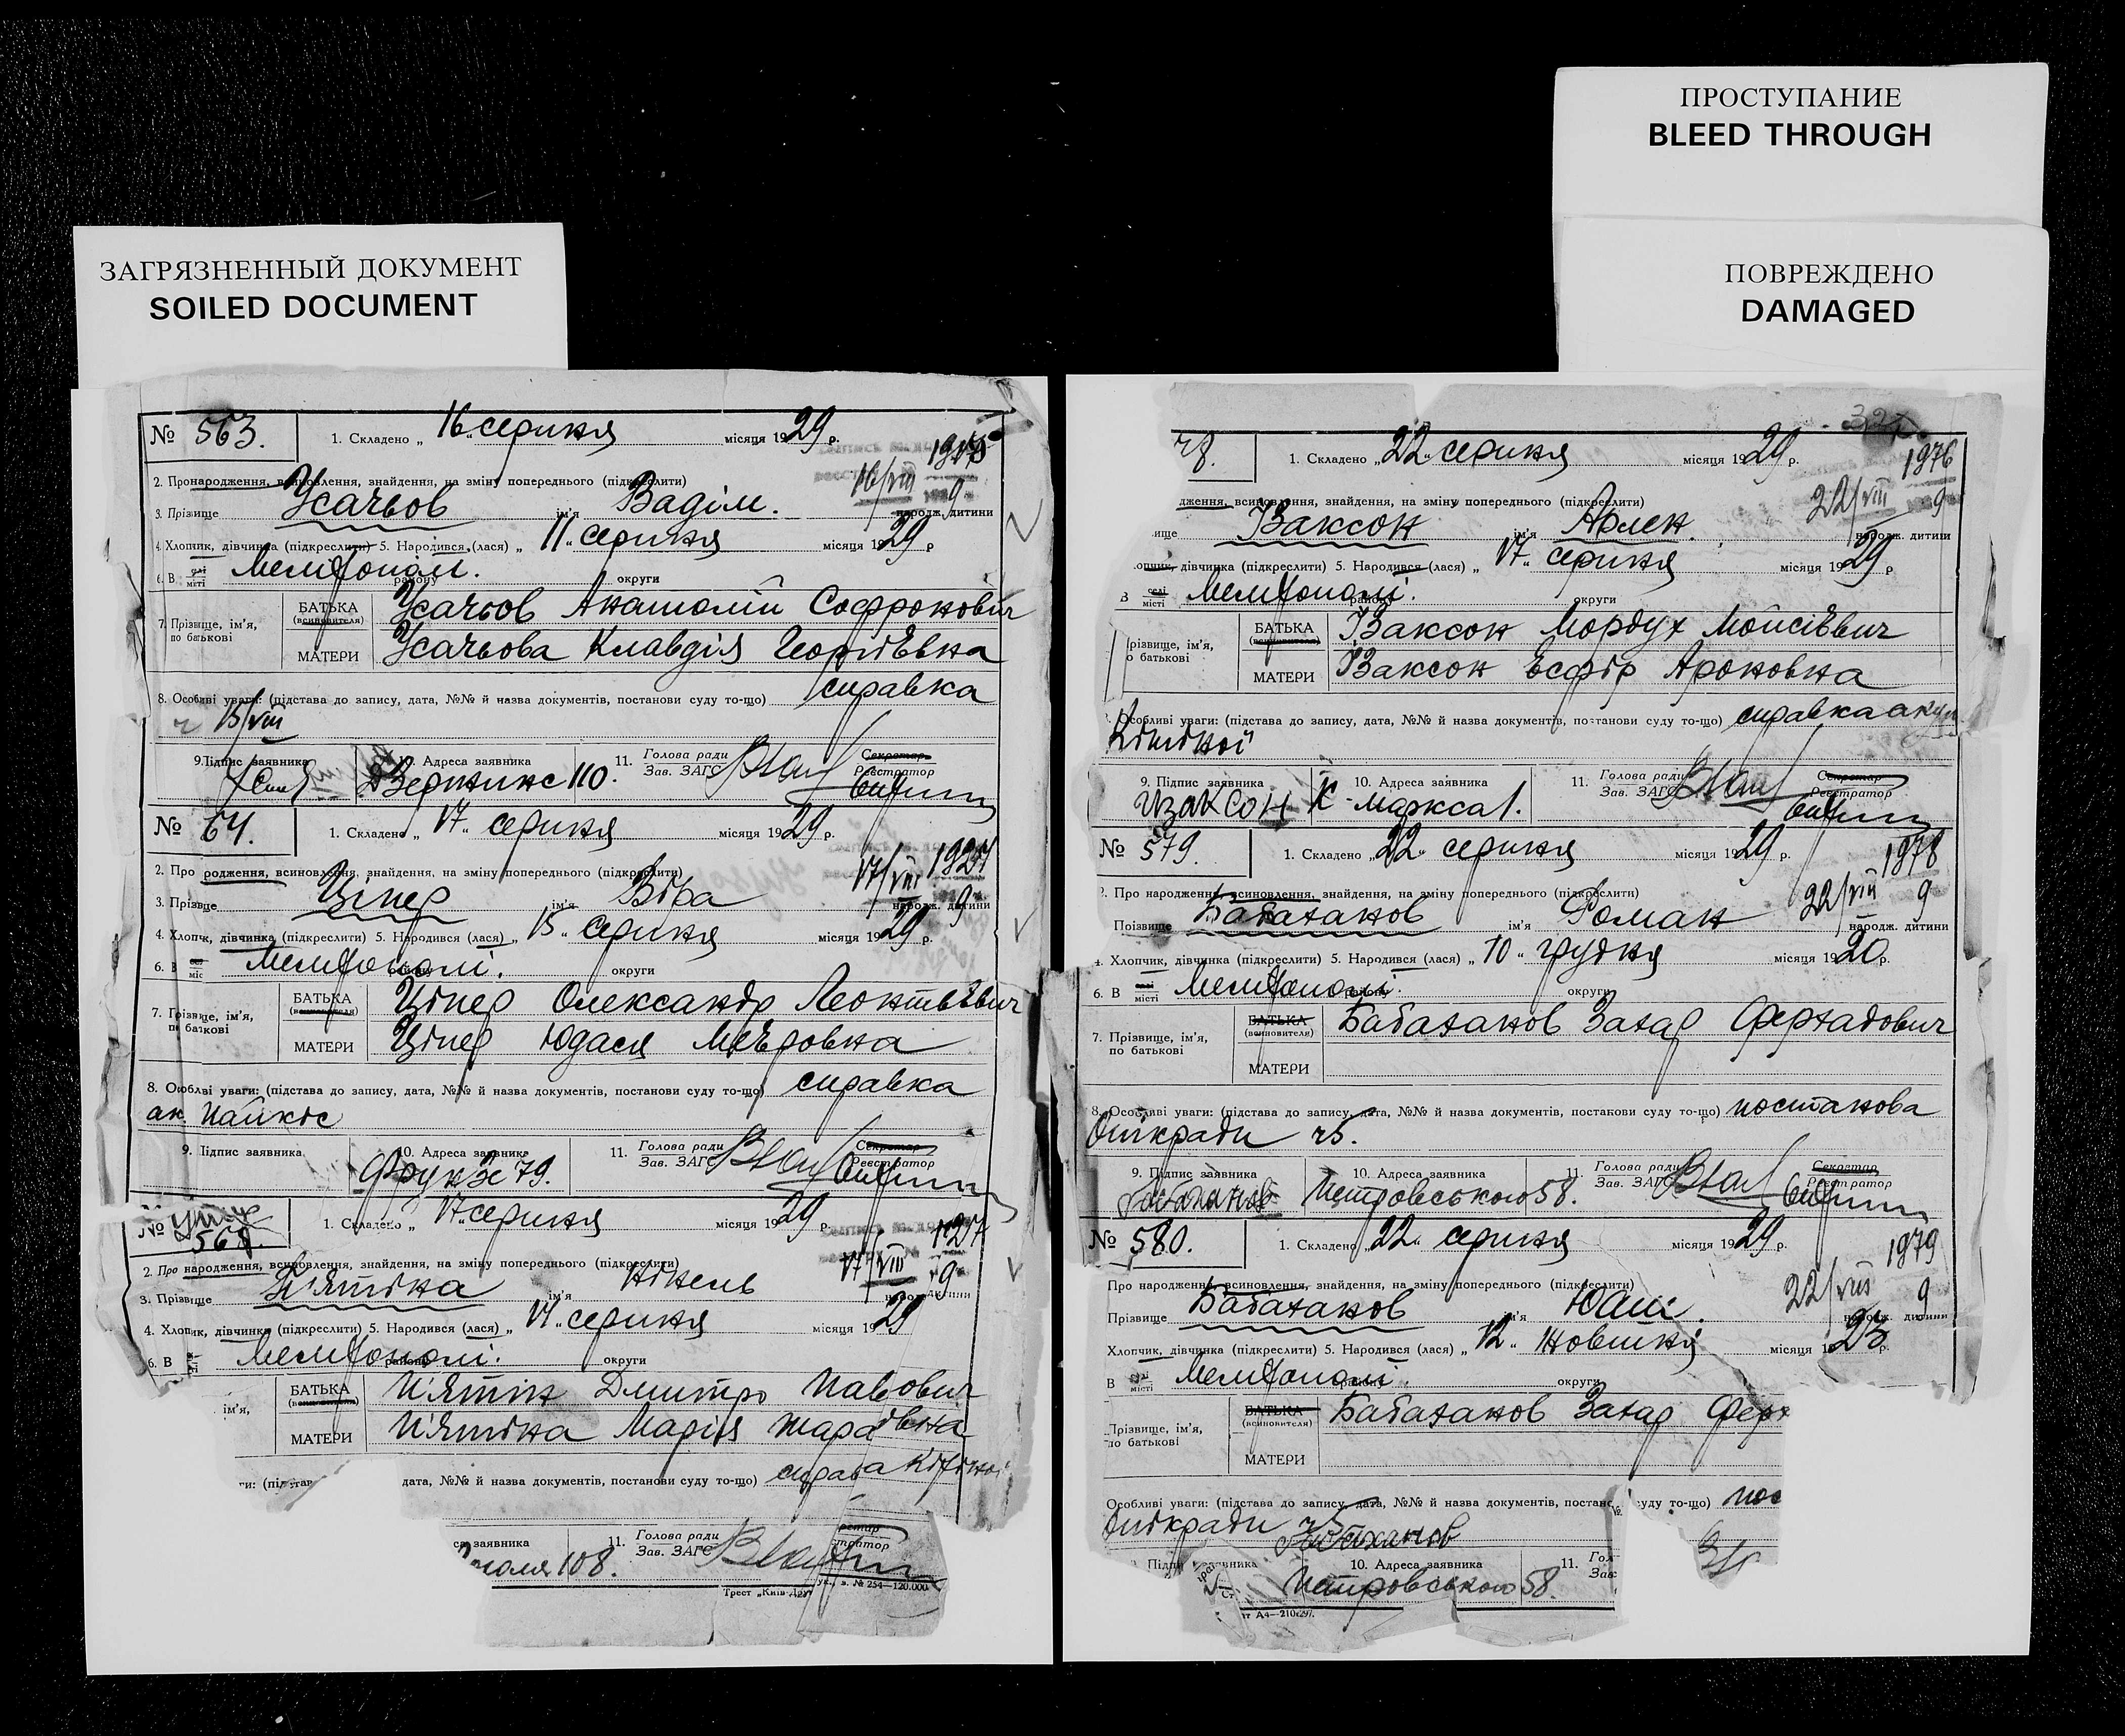 ЗАГРЯЗНЕННЫЙ ДОКУМЕНТ
SOILED DOCUMENT
ПРОСТУПАНИЕ
BLEED THROUGH
ПОВРЕЖДЕНО
DAMAGED
№ 563. 1. Складено „16„ серпня місяця 1929 р.
16/VIII 9
2. Про народження, всиновлення, знайдення, на зміну попереднього (підкреслити)
3. Прізвище Усачьов ім'я Вадім. народж. дитини
4. Хлопчик, дівчинка (підкреслити) 5. Народився (лася) „ 11„ серпня місяця 1929 р
6. В селі місті Мелітополі. району округи
7. Прізвище, ім'я, по батькові
БАТЬКА (всиновителя) Усачьов Анатолій Софронович
МАТЕРИ Усачьова Клавдія Георгіевна
8. Особливі уваги: (підстава до запису, дата, №№ й назва документів, постанови суду то-що) справка
15/VIII
9. Підпис заявника 10. Адреса заявника 11. Голова ради Зав. ЗАГС Секретар Реєстратор
Дзержинс 110.
№ 64. 1. Складено „ 17„ серпня місяця 1929 р.
17/VIII 9
2. Про родження, всиновлення, знайдення, на зміну попереднього (підкреслити)
3. Прізвще Ціпер ім'я Віра народж. дитини
4. Хлопчк, дівчинка (підкреслити) 5. Народився (лася) „ 15„ серпня місяця 1929 р.
6. В міс Мелітополі. району округи
7. Прізвище, ім'я, по батькові
БАТЬКА (всиновителя) Ціпер Олександр Леонтьевич
МАТЕРИ Ціпер Юдася Меєровна
8. Особлві уваги: (підстава до запису, дата, №№ й назва документів, постанови суду то-що) справка
ак. Пайкіс
9. Підпис заявника 10. Адреса заявника 11. Голова ради Зав. ЗАГС Секретар Реєстратор
Фрунзе 79.
№ 565. 1. Складено „ 17„ серпня місяця 1929 р.
17/VIII 9
2. Про народження, всиновлення, знайдення, на зміну попереднього (підкреслити)
3. Прізвище П'ятіна ім'я Нінель народж. дитини
4. Хлопчик, дівчинка (підкреслити) 5. Народився (лася) „ 14„ серпня місяця 1929
6. В Мелітополі. району округи
ім'я,
БАТЬКА (всиновителя) П'ятін Дмитро Павович
МАТЕРИ П'ятіна Марія
дата, №№ й назва документів, постанови суду то-що)
заявника 11. Голова ради Зав. ЗАГС
108.
Трест „Київ-Друк" з. № 254—120.000
78. 1. Складено „22„ серпня місяця 1929 р.
1976
22/VIII 9
дження, всиновлення, знайдення, на зміну попереднього (підкреслити)
ище Ізаксон ім'я Арлен. народж. дитини
опчик, дівчинка (підкреслити) 5. Народився (лася) „ 17„ серпня місяця 1929 р
В селі місті Мелітополі. району округи
різвище, ім'я, о батькові
БАТЬКА (всиновителя) Ізаксон Мордух Мойсієвич
МАТЕРИ Ізаксон Есфір Ароновна
Особливі уваги: (підстава до запису, дата, №№ й назва документів, постанови суду то-що) справка
9. Підпис заявника 10. Адреса заявника 11. Голова ради Зав. ЗАГС Секретар Реєстратор
Изаксон К-Маркса 1.
№ 579. 1. Складено „22„ серпня місяця 1929 р.
1978
22/VIII 9
2. Про народження, всиновлення, знайдення, на зміну попереднього (підкреслити)
Прізвище Бабаханов ім'я Роман народж. дитини
4. Хлопчик, дівчинка (підкреслити) 5. Народився (лася) „ 10„ грудня місяця 1920 р.
6. В селі місті Мелітополі. району округи
7. Прізвище, ім'я, по батькові
БАТЬКА (всиновителя) Бабаханов Захар Ферхадович
МАТЕРИ
8. Особливі уваги: (підстава до запису, дата, №№ й назва документів, постанови суду то-що) постанова
Опікради ч5.
9. Підпис заявника 10. Адреса заявника 11. Голова ради Зав. ЗАГС Секретар Реєстратор
Бабаханов Петровського 58.
№ 580. 1. Складено „22„ серпня місяця 1929 р.
1979
22/VIII 9
Про народження, всиновлення, знайдення, на зміну попереднього (підкреслити)
Прізвище Бабаханов ім'я народж. дитини
Хлопчик, дівчинка (підкреслити) 5. Народився (лася) „ 12„ Жовтня місяця 1923 р.
В місті Мелітополі. району округи
Прізвище, ім'я, по батькові
БАТЬКА (всиновителя) Бабаханов Захар Ферх
МАТЕРИ
Особливі уваги: (підстава до запису, дата, №№ й назва документів, постанс суду то-що) пос
Опікради ч5
Бабаханов
Підпи заявника 10. Адреса заявника 11. Гол Зав
Петровського 58.
ат А4—210х297.